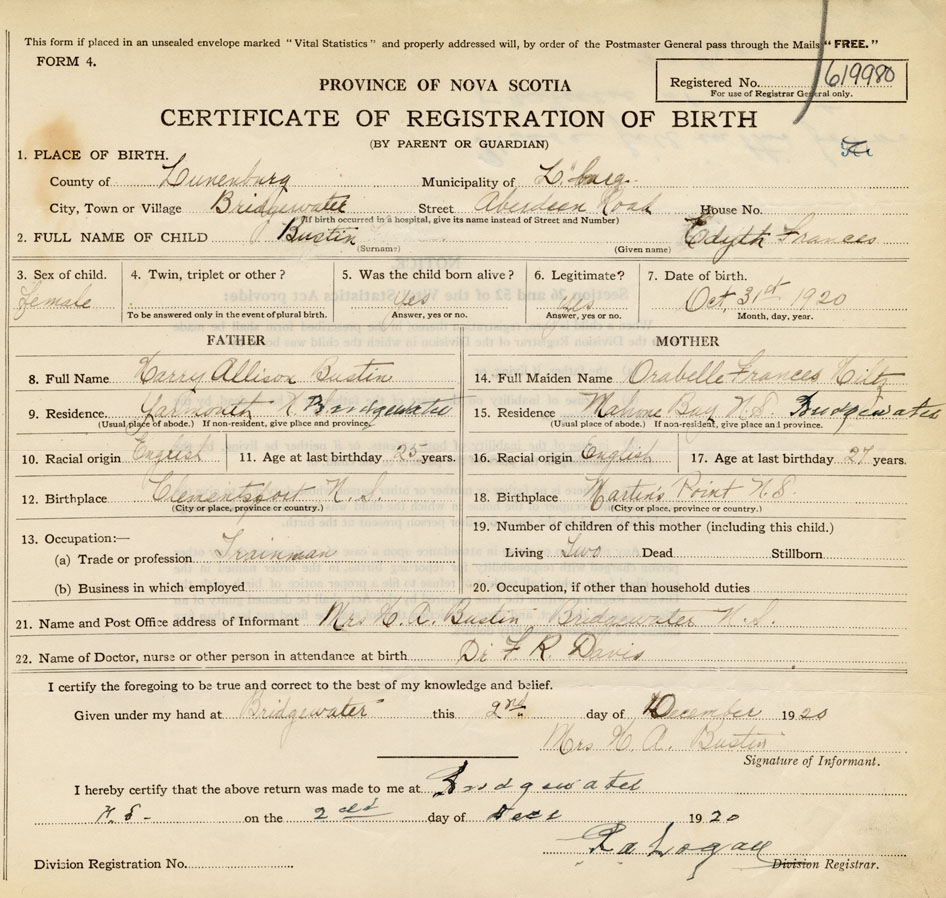 This form if placed in an unsealed envelope marked "Vital Statistics" and properly addressed will, by order of the Postmaster General pass through the Mails "FREE."
FORM 4.
PROVINCE OF NOVA SCOTIA
Registered No. 619980
For use of Registrar General only.
CERTIFICATE OF REGISTRATION OF BIRTH
(BY PARENT OR GUARDIAN)
1. PLACE OF BIRTH.
County of Lunenburg Municipality of L'burg
City, Town or Village Bridgewater Street Aberdeen Road House No.
(If birth occurred in a hospital, give its name instead of Street and Number)
2. FULL NAME OF CHILD Bustin Edyth Frances
(Surname) (Given name)
3. Sex of child. 4. Twin, triplet or other ? 5. Was the child born alive ? 6. Legitimate? 7. Date of birth.
Female Yes Yes Oct. 31st 1920
To be answered only in the event of plural birth. Answer, yes or no. Answer, yes or no. Month, day, year.
FATHER MOTHER
8. Full Name Harry Allison Bustin 14. Full Maiden Name Orabelle Frances Hiltz
9. Residence Yarmouth N. Bridgewater 15. Residence Mahone Bay N.S. Bridgewater
(Usual place of abode.) If non-resident, give place and province. (Usual place of abode.) If non-resident, give place and province.
10. Racial origin English 11. Age at last birthday 25 years. 16. Racial origin English 17. Age at last birthday 27 years.
12. Birthplace Clementsport N.S. 18. Birthplace Martin's Point N.S.
(City or place, province or country.) (City or place, province or country.)
13. Occupation:— 19. Number of children of this mother (including this child.)
(a) Trade or profession Trainman Living Two Dead Stillborn
(b) Business in which employed 20. Occupation, if other than household duties
21. Name and Post Office address of Informant Mrs H. A. Bustin Bridgewater N.S.
22. Name of Doctor, nurse or other person in attendance at birth Dr F. R. Davis
I certify the foregoing to be true and correct to the best of my knowledge and belief.
Given under my hand at Bridgewater this 2nd day of December 1920
Mrs H. A. Bustin
Signature of Informant.
I hereby certify that the above return was made to me at Bridgewater
N.S. on the 2nd day of Dec 1920
Logan
Division Registration No. Division Registrar.